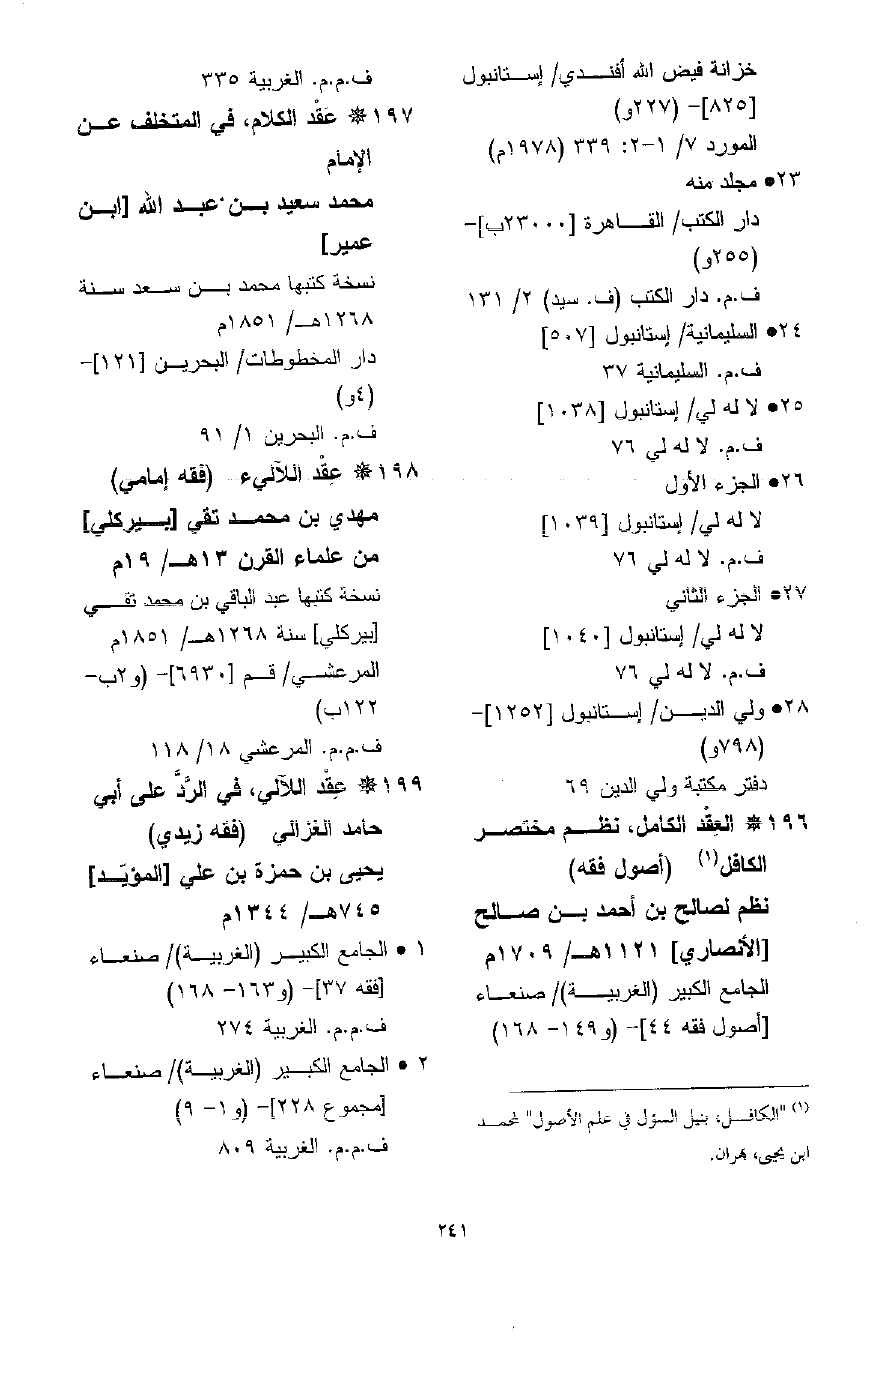 خزانة فيض الله أفندي/ إستانبول
[٨٢٥]- (٢٢٧و)
المورد ٧/ ١-٢: ٣٣٩ (١٩٧٨م)
٢٣• مجلد منه
دار الكتب/ القاهرة [٢٣٠٠٠ب]-
(٢٥٥و)
ف.م. دار الكتب (ف. سيد) ٢/ ١٣١
٢٤• السليمانية/ إستانبول [٥٠٧]
ف.م. السليمانية ٣٧
٢٥• لا له لي/ إستانبول [١٠٣٨]
ف.م. لا له لي ٧٦
٢٦• الجزء الأول
لا له لي/ إستانبول [١٠٣٩]
ف.م. لا له لي ٧٦
٢٧• الجزء الثاني
لا له لي/ إستانبول [١٠٤٠]
ف.م. لا له لي ٧٦
٢٨• ولي الدين/ إستانبول [١٢٥٢]-
(٧٩٨و)
دفتر مكتبة ولي الدين ٦٩
١٩٦ * العِقْد الكامل، نظم مختصر
الكافل(١) (أصول فقه)
نظم لصالح بن أحمد بن صالح
[الأنصاري] ١١٢١هـ/ ١٧٠٩م
الجامع الكبير (الغربية)/ صنعاء
[أصول فقه ٤٤]- (و١٤٩- ١٦٨)
(١) "الكافل، بنيل السؤل في علم الأصول" لمحمد
ابن يحيى، بهران.
ف.م.م. الغربية ٣٣٥
١٩٧ * عَقْد الكلام، في المتخلف عن
الإمام
محمد سعيد بن عبد الله [ابن
عمير]
نسخة كتبها محمد بن سعد سنة
١٢٦٨هـ/ ١٨٥١م
دار المخطوطات/ البحرين [١٢١]-
(٤و)
ف.م. البحرين ١/ ٩١
١٩٨ * عِقْد اللآليء (فقه إمامي)
مهدي بن محمد تقي [بيركلي]
من علماء القرن ١٣هـ/ ١٩م
نسخة كتبها عبد الباقي بن محمد تقي
[بيركلي] سنة ١٢٦٨هـ/ ١٨٥١م
المرعشي/ قم [٦٩٣٠]- (و٢ب-
١٢٢ب)
ف.م.م. المرعشي ١٨/ ١١٨
١٩٩ * عِقْد اللآلي، في الرَّدِّ على أبي
حامد الغزالي (فقه زيدي)
يحيى بن حمزة بن علي [المؤيَّد]
٧٤٥هـ/ ١٣٤٤م
١ • الجامع الكبير (الغربية)/ صنعاء
[فقه ٣٧]- (و١٦٣- ١٦٨)
ف.م.م. الغربية ٢٧٤
٢ • الجامع الكبير (الغربية)/ صنعاء
[مجموع ٢٢٨]- (و١- ٩)
ف.م.م. الغربية ٨٠٩
٢٤١